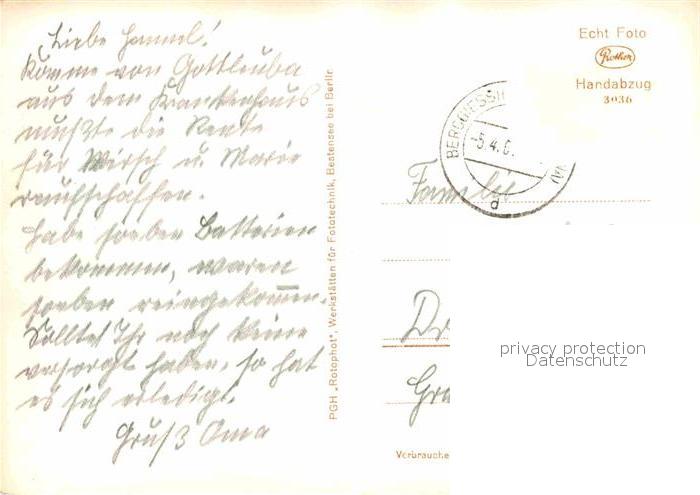 Liebe Hannel!
Komme von Gottleuba
aus dem Krankenhaus
mußte die Rente
für Wirsch u. Marie
raufschaffen.
Habe soeben Batterien
bekommen, waren
soeben reingekommen.
Solltet Ihr noch keine
versorgt haben, so hat
es sich erledigt.
Gruß Oma
PGH „Rotophot", Werkstätten für Fototechnik, Bestensee bei Berlin
Echt Foto
Handabzug
3036
-5.4.6
a
Familie
Dr
Gra
privacy protection
Datenschutz
Verbrauche